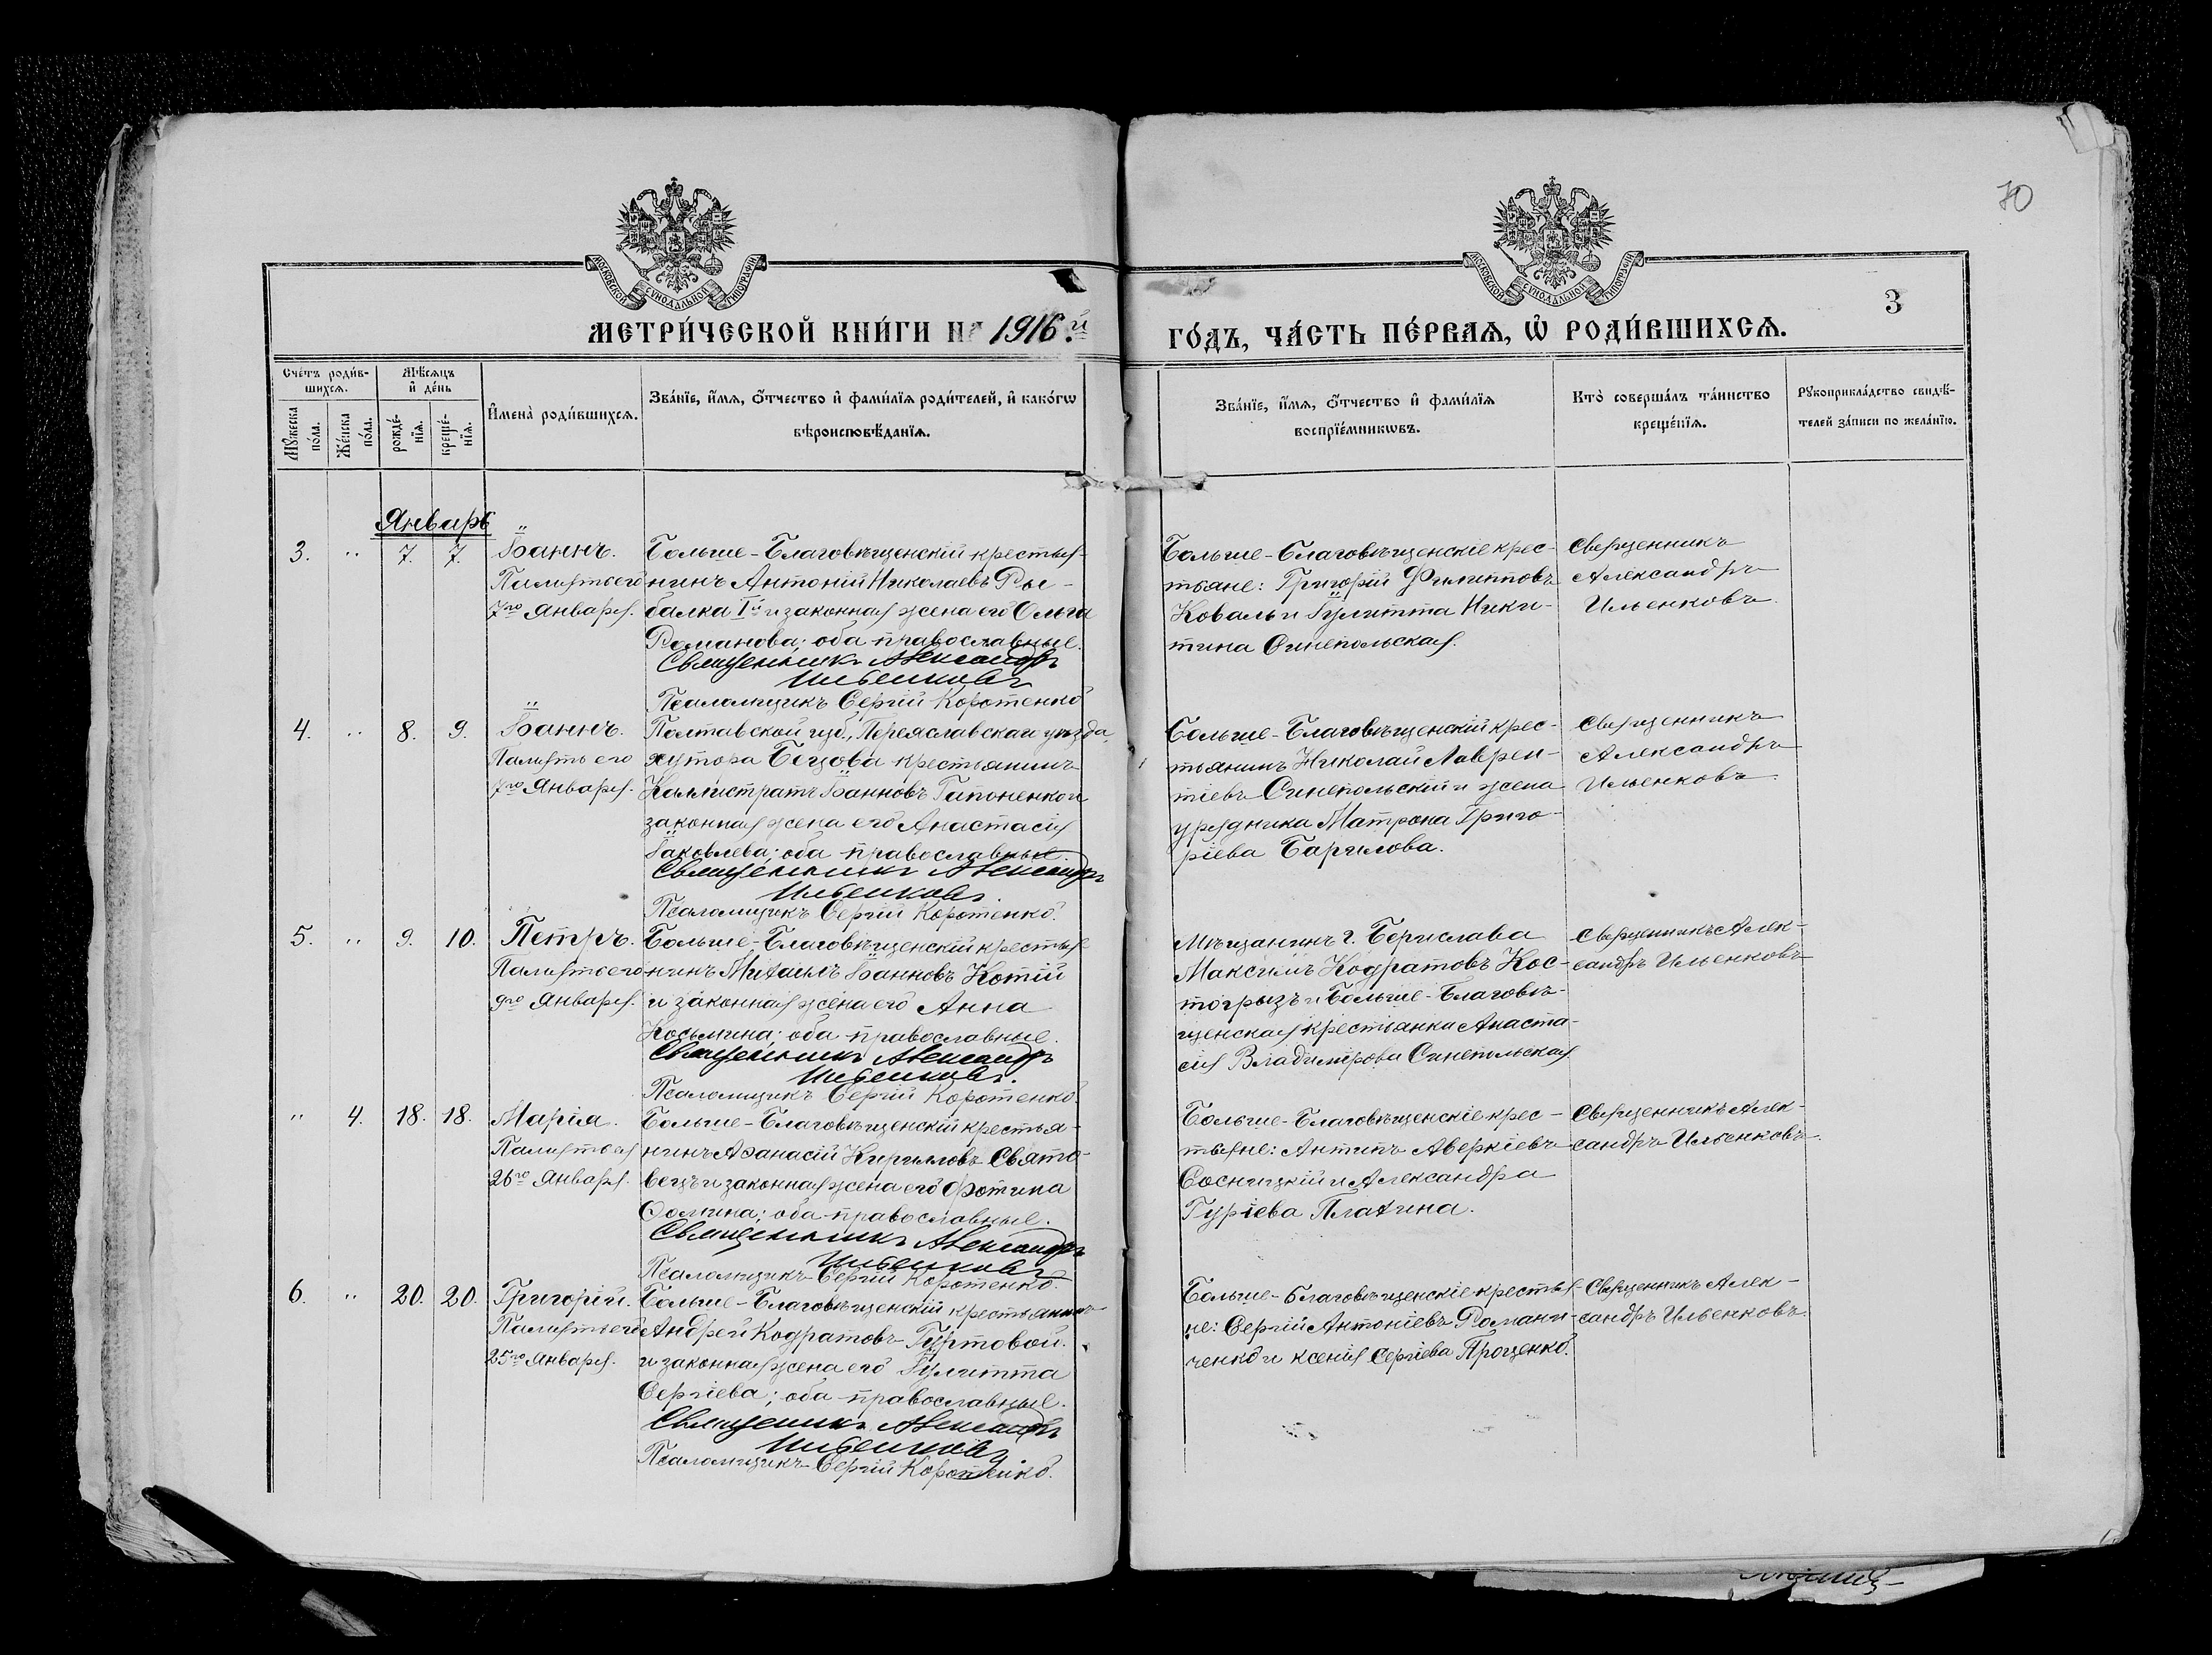 70
МОСКОВСКОЙ СѴНОДАЛЬНОЙ ТИПОГРАФІИ
МОСКОВСКОЙ СѴНОДАЛЬНОЙ ТИПОГРАФІИ
3
МЕТРИ́ЧЕСКОЙ КНИ́ГИ НА 1916.й
ГО́ДЪ, ЧА́СТЬ ПЕ́РВАѦ, Ѡ҆ РОДИ́ВШИХСѦ.
Сче́тъ роди́в-
шихсѧ.
Мꙋ́жеска по́ла.
Же́нска по́ла.
Мѣ́сѧцъ и҆ де́нь
рожде́-нїѧ.
креще́-нїѧ.
И҆мена̀ роди́вшихсѧ.
Зва́нїе, и҆́мѧ, ѻ҆́тчество и҆ фами́лїѧ роди́телей, и҆ како́гѡ
вѣроисповѣ́данїѧ.
Зва́нїе, и҆́мѧ, ѻ҆́тчество и҆ фами́лїѧ
воспрїе́мникѡвъ.
Кто̀ соверша́лъ та́инство
креще́нїѧ.
Рꙋкоприкла́дство свидѣ́-
телей за́писи по жела́нїю.
Январь
3. " 7. 7. Іоаннъ.
Память его
7го Января.
Больше-Благовѣщенскій крестья-
нинъ Антоній Николаевъ Ры-
балка Iй и законная жена его Ольга
Романова; оба православные.
Священникъ Александръ
Ильенковъ
Псаломщикъ Сергій Коротенко
Больше-Благовѣщенскіе крес-
тьяне: Григорій Филипповъ
Коваль и Іулитта Ники-
тина Синепольская.
Священникъ
Александръ
Ильенковъ
4. " 8. 9. Іоаннъ.
Память его
7го Января.
Полтавской губ., Переяславскаго уѣзда,
хутора Бецова крестьянинъ
Каллистратъ Іоанновъ Гапоненко и
законная жена его Анастасія
Іаковлева; оба православные.
Священникъ Александръ
Ильенковъ.
Псаломщикъ Сергій Коротенко.
Больше-Благовѣщенскій крес-
тьянинъ Николай Лаврен-
тіевъ Синепольскій и жена
урядника Матрона Григо-
ріева Баричлова.
Священникъ
Александръ
Ильенковъ
5. " 9. 10. Петръ.
Память его
9го Января.
Больше-Благовѣщенскій крестья-
нинъ Михаилъ Іоанновъ Котій
и законная жена его Анна
Косьмина; оба православные.
Священникъ Александръ
Ильенковъ.
Псаломщикъ Сергій Коротенко.
Мѣщанинъ г. Берислава
Максимъ Кодратовъ Кос-
тогрызъ и Больше-Благовѣ-
щенская крестьянка Анаста-
сія Владимірова Синепольская
Священникъ Алек-
сандръ Ильенковъ
" 4. 18. 18. Марія.
Память ея
26го Января.
Больше-Благовѣщенскій крестья-
нинъ Аѳанасій Кирилловъ Свято-
вецъ и законная жена его Фотина
Ѳомина; оба православные.
Священникъ Александръ
Ильенковъ
Псаломщикъ Сергій Коротенко.
Больше-Благовѣщенскіе крес-
тьяне: Антипъ Аверкіевъ
Сосницкій и Александра
Гуріева Плахина.
Священникъ Алек-
сандръ Ильенковъ.
6. " 20. 20. Григорій.
Память его
25го Января.
Больше-Благовѣщенскій крестьянинъ
Андрей Кодратовъ Гуртовой
и законная жена его Іулитта
Сергіева; оба православные.
Священникъ Александръ
Ильенковъ
Псаломщикъ Сергій Коротенко.
Больше-Благовѣщенскіе крестья-
не: Сергій Антоніевъ Романи-
ченко и Ксенія Сергіева Проценко.
Священникъ Алек-
сандръ Ильенковъ.